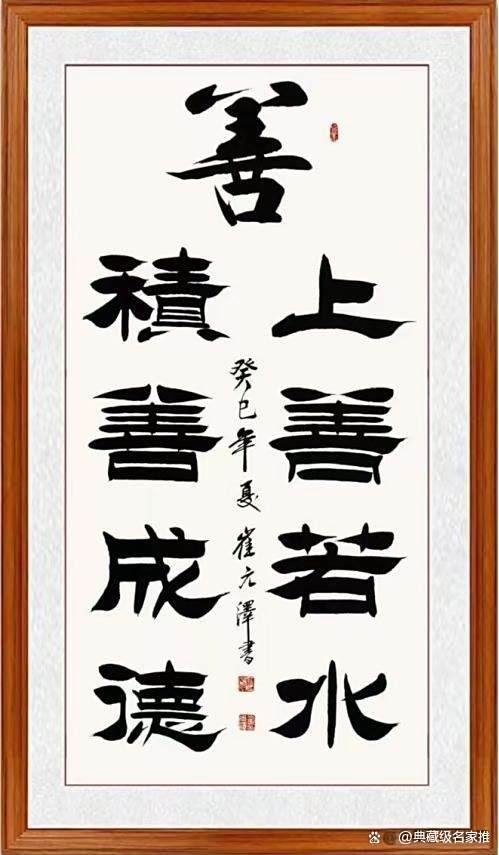 善
上善若水
積善成德
癸巳年夏 崔元澤書
@典藏级名家推